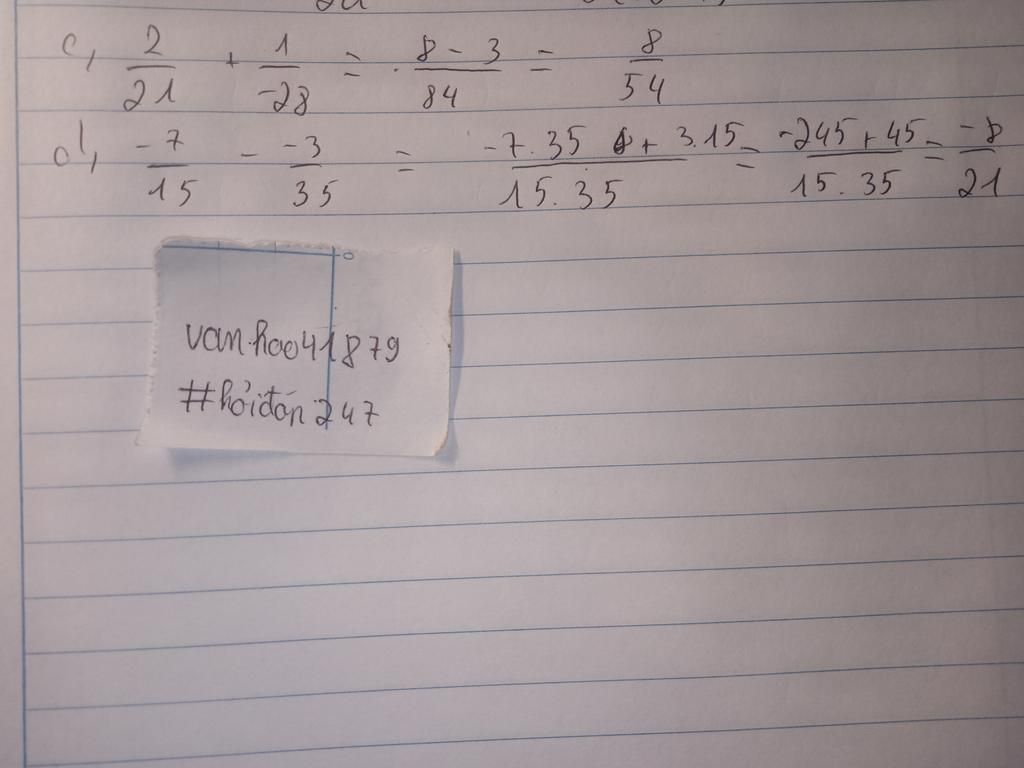 c, 2/21 + 1/-28 = 8 - 3/84 = 8/54
d, -7/15 - -3/35 = -7.35 + 3.15/15.35 = -245 + 45/15.35 = -8/21
van.hoo41879
#hỏiđón247